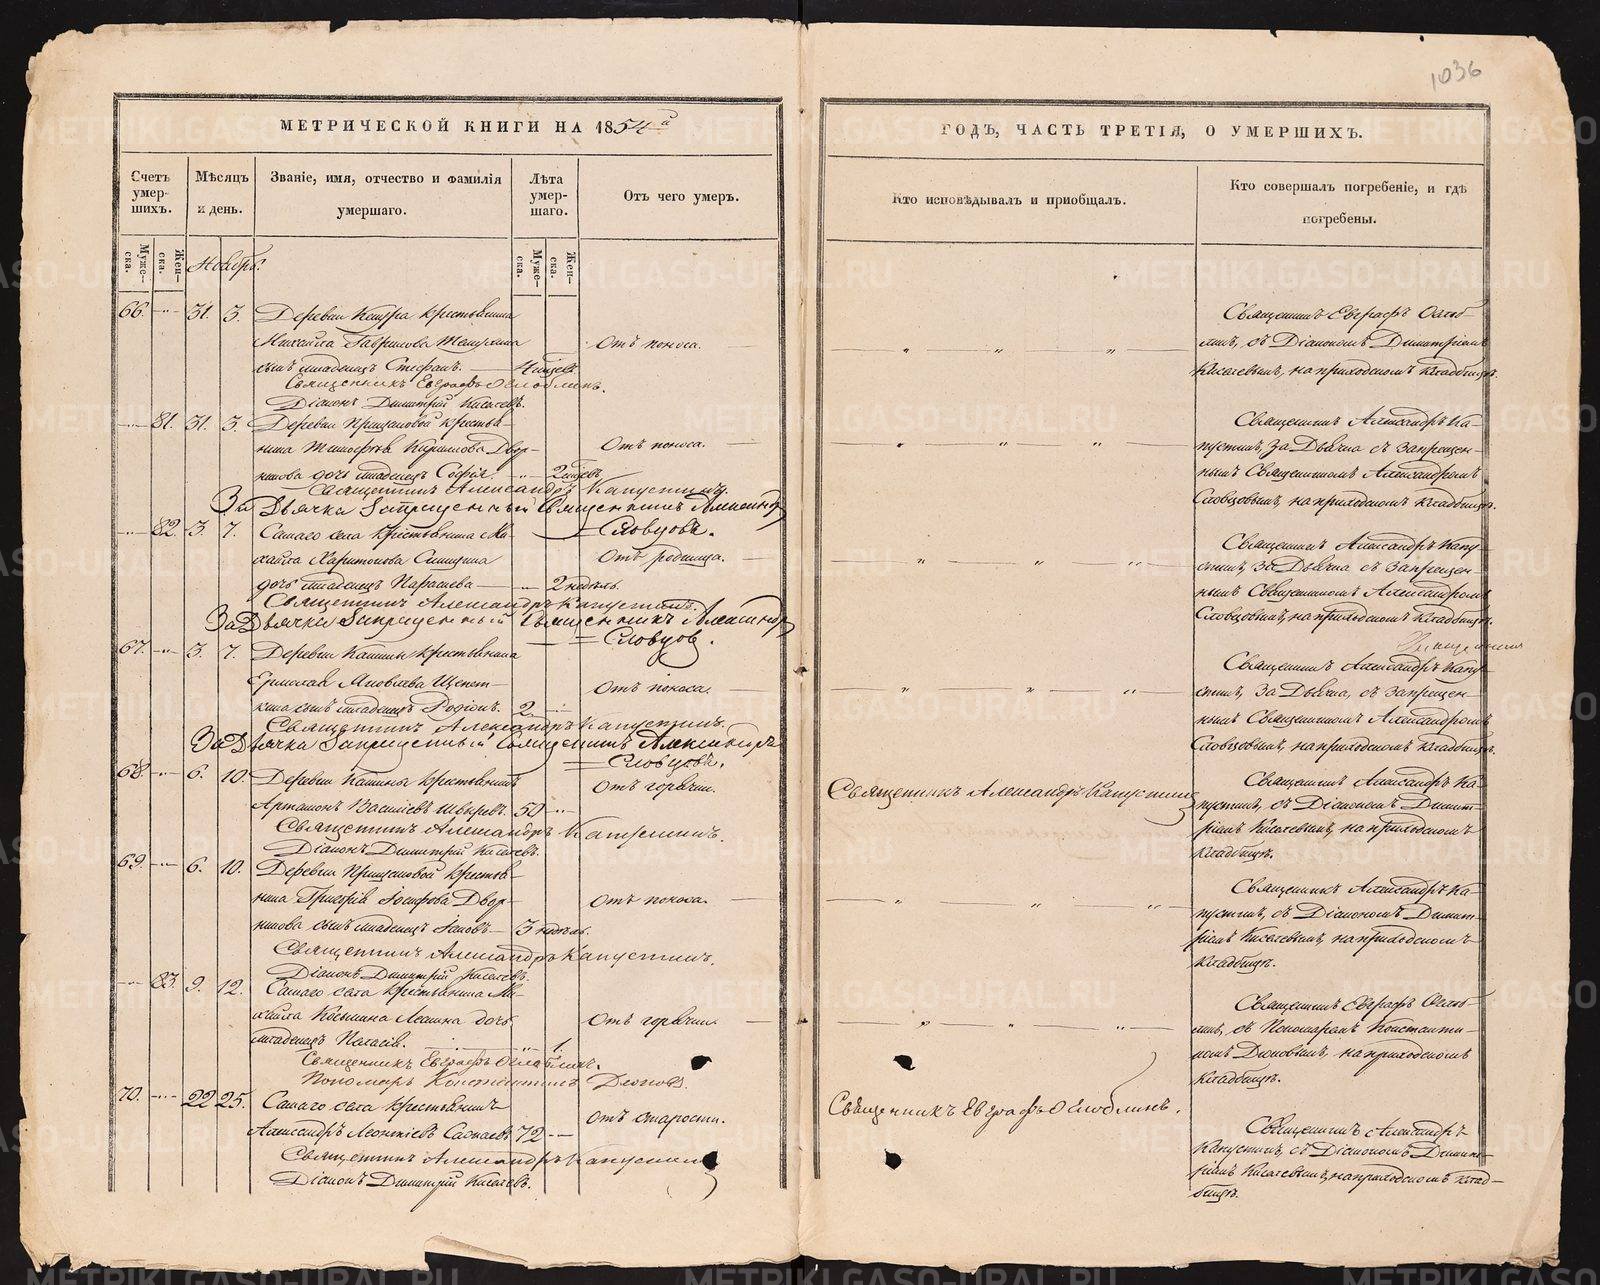 1036
МЕТРИЧЕСКОЙ КНИГИ НА 1854й
ГОДЪ, ЧАСТЬ ТРЕТІЯ, О УМЕРШИХЪ.
Счетъ умер-
шихъ.
Муже-
ска.
Жен-
ска.
Мѣсяцъ
и день.
Званіе, имя, отчество и фамилія
умершаго.
Лѣта
умер-
шаго.
Муже-
ска.
Жен-
ска.
Отъ чего умеръ.
Кто исповѣдывалъ и пріобщалъ.
Кто совершалъ погребеніе, и гдѣ
погребены.
Ноябрь.
66. 31. 3. Деревни крестьянина
Михаила Гаврилова
сынъ младенецъ Стефанъ.
Отъ поноса.
Священникъ Евграфъ Оглоблинъ.
Діаконъ Димитрій Кисилевъ.
Священникъ Евграфъ Оглоб-
линъ, съ Діакономъ Димитріемъ
Кисилевымъ, на приходскомъ кладбищѣ.
81. 31. 3. Деревни крестья-
нина Кирилова Двор-
никова дочь младенецъ Софія.
Отъ поноса.
Священникъ Александръ Капустинъ.
За Дьячка Запрещенный Священникъ Александръ
Словцовъ.
Священникъ Александръ Ка-
пустинъ, за Дьячка съ запрещен-
нымъ Священникомъ Александромъ
Словцовымъ, на приходскомъ кладбищѣ.
82. 3. 7. Самаго села крестьянина Ми-
хаила Харитонова
дочь младенецъ Параскева 2 недѣль.
Отъ родимца.
Священникъ Александръ Капустинъ.
За Дьячка Запрещенный Священникъ Александръ
Словцовъ.
Священникъ Александръ Капу-
стинъ, за Дьячка съ запрещен-
нымъ Священникомъ Александромъ
Словцовымъ, на приходскомъ кладбищѣ.
67. 3. 7. Деревни крестьянина
Ермолая Яковлева Щепет-
кина сынъ младенецъ Родіонъ. 2
Отъ поноса.
Священникъ Александръ Капустинъ.
За Дьячка Запрещенный Священникъ Александръ
Словцовъ.
Священникъ Александръ Капу-
стинъ, за Дьячка, съ запрещен-
нымъ Священникомъ Александромъ
Словцовымъ, на приходскомъ кладбищѣ.
68. 6. 10. Деревни крестьянинъ
Артамонъ Васильевъ 50
Отъ горячки.
Священникъ Александръ Капустинъ.
Діаконъ Димитрій Кисилевъ.
Священникъ Александръ Капустинъ
Священникъ Александръ Ка-
пустинъ, съ Діакономъ Димит-
ріемъ Кисилевымъ, на приходскомъ
кладбищѣ.
69. 6. 10. Деревни крестья-
нина Григорія Іосифова Двор-
никова сынъ младенецъ Іаковъ 3 недѣль.
Отъ поноса.
Священникъ Александръ Капустинъ.
Діаконъ Димитрій Кисилевъ.
Священникъ Александръ Ка-
пустинъ, съ Діакономъ Димит-
ріемъ Кисилевымъ, на приходскомъ
кладбищѣ.
83. 9. 12. Самаго села крестьянина Ми-
хаила Козьмина дочь
младенецъ Пелагія. 1.
Отъ горячки.
Священникъ Евграфъ Оглоблинъ.
Пономарь Константинъ
Священникъ Евграфъ Оглоб-
линъ, съ Пономаремъ Константи-
номъ на приходскомъ
кладбищѣ.
70. 22 25. Самаго села крестьянинъ
Александръ Леонтіевъ 72
Отъ старости.
Священникъ Александръ Капустинъ
Діаконъ Димитрій Кисилевъ.
Священникъ Евграфъ Оглоблинъ.
Священникъ Александръ
Капустинъ, съ Діакономъ Димит-
ріемъ Кисилевымъ, на приходскомъ клад-
бищѣ.
METRIKI.GASO-URAL.RU